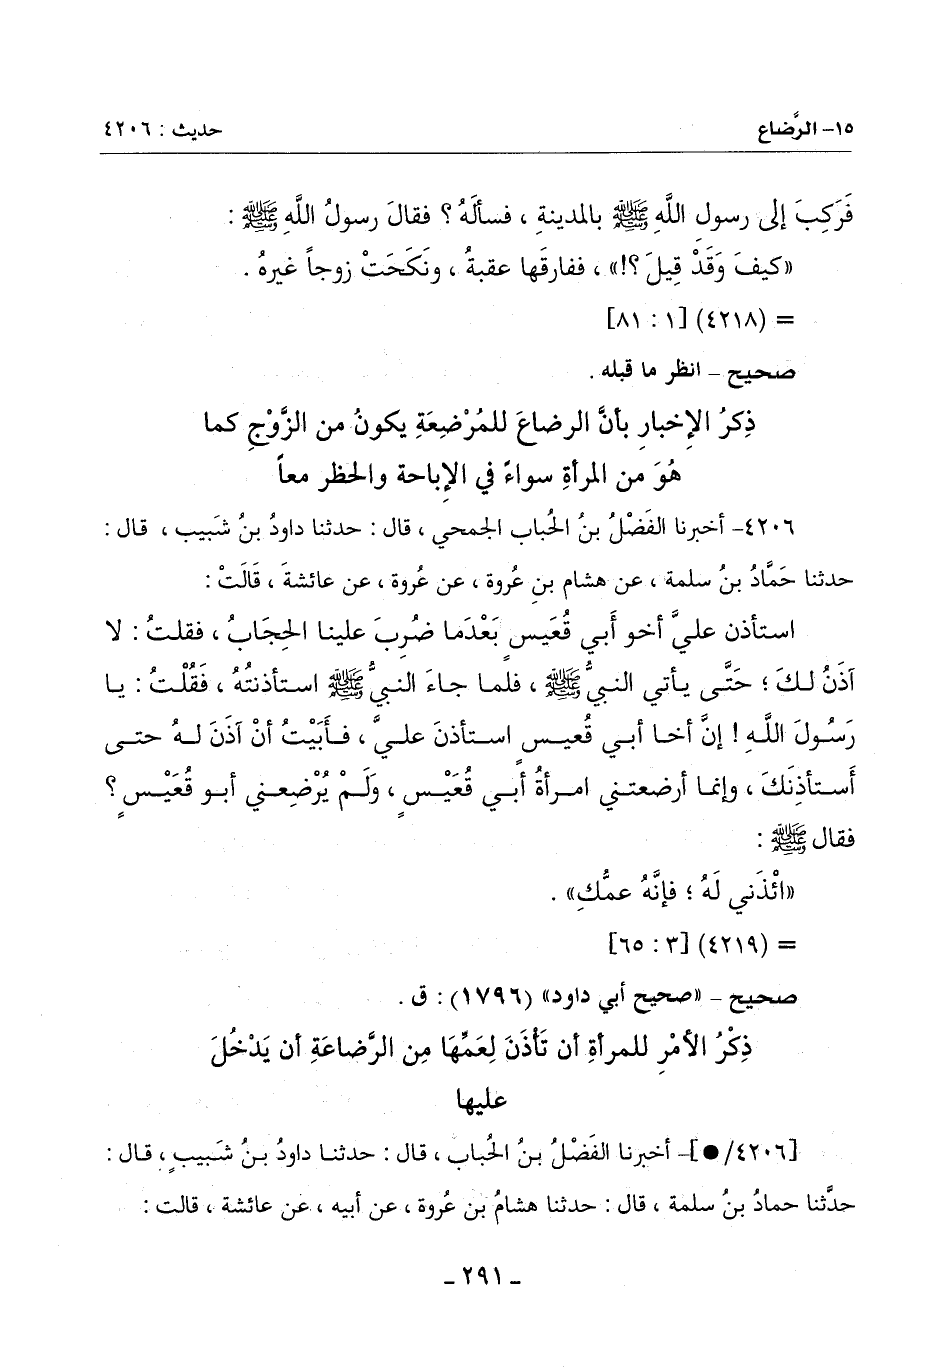 ١٥- الرَّضاع
حديث : ٤٢٠٦
فَرَكِبَ إلى رسول اللَّهِ ﷺ بالمدينةِ ، فسألَهُ ؟ فقالَ رسولُ اللَّهِ ﷺ :
«كيفَ وَقَدْ قِيلَ ؟!» ، ففارقها عقبةُ ، ونَكَحَتْ زوجاً غيرهُ .
= (٤٢١٨) [١ : ٨١]
صحيح - انظر ما قبله .
ذِكرُ الإخبارِ بأنَّ الرضاعَ للمُرْضِعَةِ يكونُ من الزَّوْجِ كما
هُوَ من المرأةِ سواءً في الإباحة والحظر معاً
٤٢٠٦- أخبرنا الفَضْلُ بنُ الحُباب الجمحي ، قال : حدثنا داودُ بنُ شَبيب ، قال :
حدثنا حَمَّادُ بنُ سلمة ، عن هشام بنِ عُروة ، عن عُروة ، عن عائشةَ ، قَالَتْ :
استأذن عليَّ أخو أبي قُعَيسٍ بَعْدَما ضُرِبَ علينا الحِجَابُ ، فقلتُ : لا
آذَنُ لكَ ؛ حَتَّى يأتي النبيُّ ﷺ ، فلما جاءَ النبيُّ ﷺ استأذنتُهُ ، فَقُلْتُ : يا
رَسُولَ اللَّهِ ! إنَّ أخا أبي قُعيسٍ استأذنَ عليَّ ، فأبَيْتُ أنْ آذَنَ لهُ حتى
أستأذِنَكَ ، وإنما أرضعتني امرأةُ أبي قُعَيْسٍ ، ولَمْ يُرْضِعني أبو قُعَيْسٍ ؟
فقال ﷺ :
«ائْذَني لَهُ ؛ فإنَّهُ عمُّكِ» .
= (٤٢١٩) [٣ : ٦٥]
صحيح - «صحيح أبي داود» (١٧٩٦) : ق .
ذِكْرُ الأمْرِ للمرأةِ أن تَأْذَنَ لِعَمِّهَا مِن الرَّضاعَةِ أن يَدْخُلَ
عليها
[٤٢٠٦/●]- أخبرنا الفَضْلُ بنُ الحُباب ، قال : حدثنا داودُ بنُ شَبيبٍ ، قال :
حدَّثنا حمادُ بنُ سلمة ، قال : حدثنا هشامُ بن عُروة ، عن أبيه ، عن عائشة ، قالت :
- ٢٩١ -